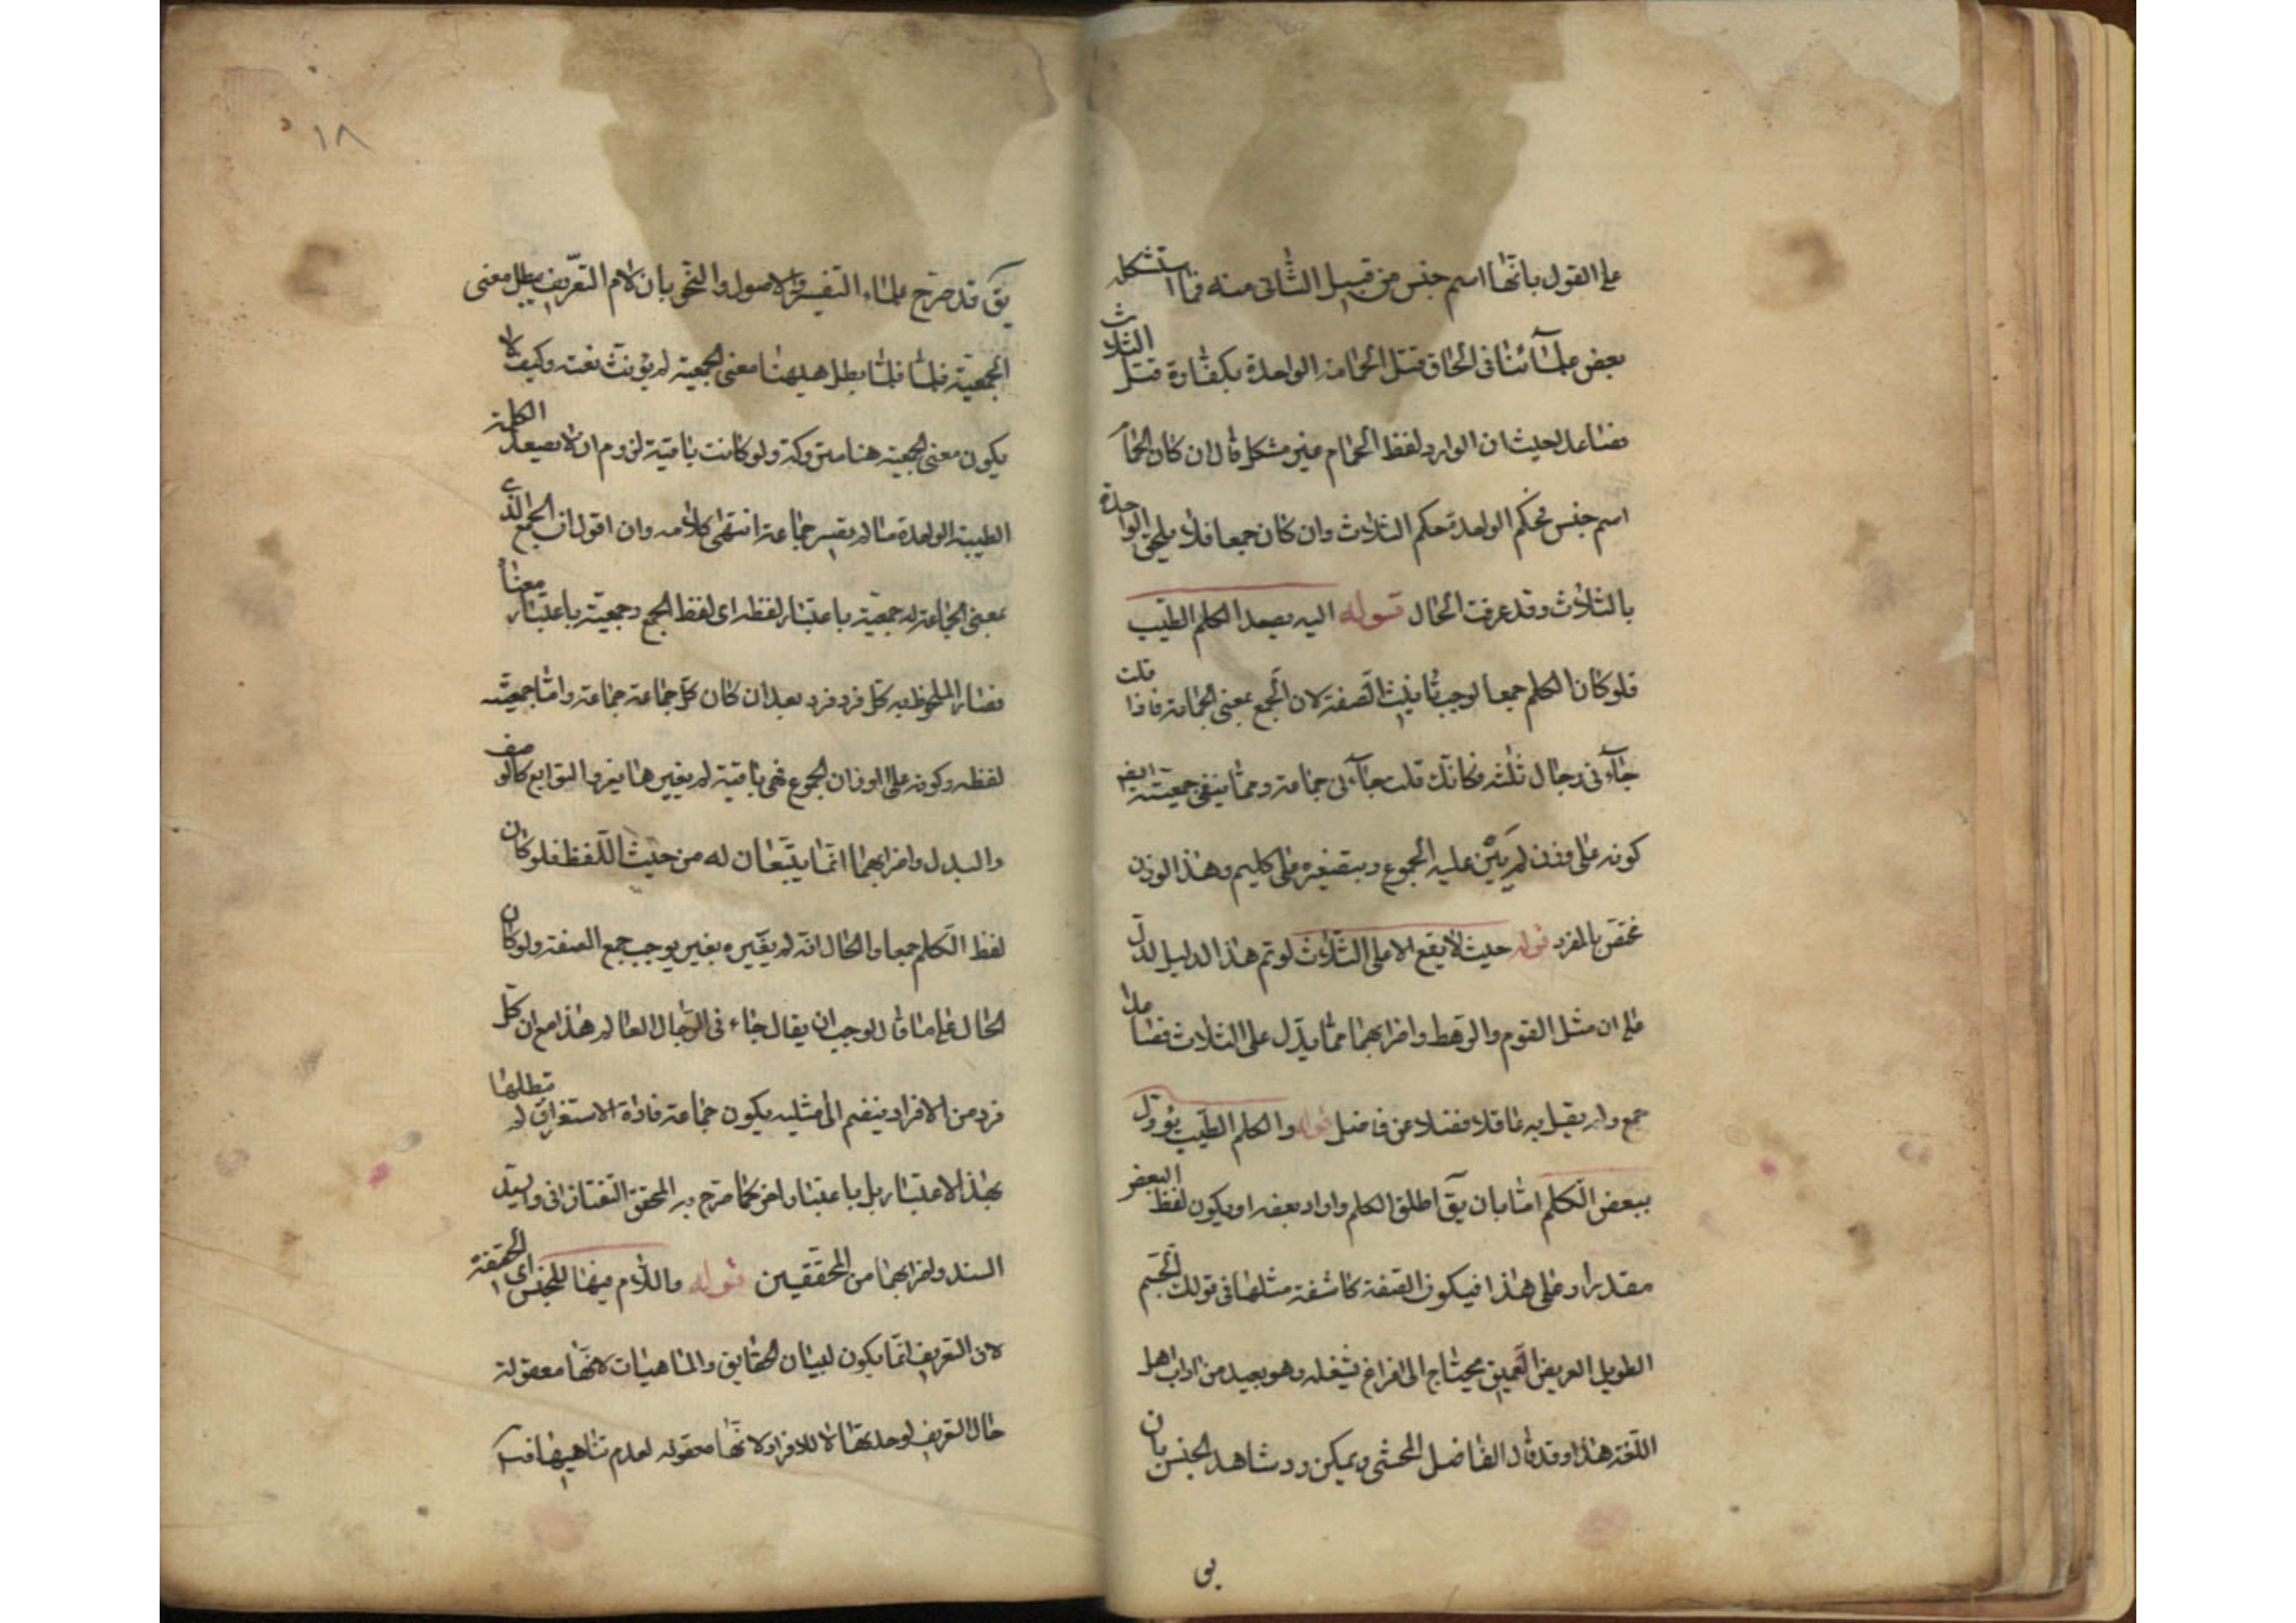 على القول بانها اسم جنس من قبيل الثاني منه فما استشكله
بعض علمآئنا في الحاق قتل الحمامة الواحدة بكفارة قتل الثلاث
فصاعدا حيث ان الوارد لفظ الحمام غير مشكل قال ان كان الحما
اسم جنس فحكم الواحدة حكم الثلاث وان كان جمعا فلا يلحق الواحدة
بالثلاث وقد عرفت الحال قوله اليه يصعد الكلم الطيب
فلو كان الكلم جمعا لوجب تانيث الصفة لان الجمع بمعنى الجماعة فاذا قلت
جآءنى رجال ثلثة فكانك قلت جآءنى جماعة ومما ينفي جمعيته ايضا
كونه على وزن لم يبن عليه الجموع وبتصغيره على كليم وهذا الوزن
مختص بالمفرد قوله حيث لا يقع الا على الثلاث لو تم هذا الدليل لدل
على ان مثل القوم والرهط واضرابهما مما يدل على الثلاث فصاعدا
جمع ولم يقل به عاقلا فضلا عن فاضل قوله والكلم الطيب يؤول
ببعض الكلم اما بان يق اطلق الكلم واراد بعضه او يكون لفظ البعض
مقدرا وعلى هذا فيكون الصفة كاشفة مثلها في قولك الجسم
الطويل العريض العميق يحتاج الى فراغ يشغله وهو بعيد من اداب اهل
اللغة هذا وقد قال الفاضل المحشى ويمكن رد شاهد الجنس بان
يق
١٨
يق قد صرح علماء التفسير والاصول والنحو بان لام التعريف يبطل معنى
الجمعية فلما بطل هيهنا معنى الجمعية لم يؤنث نعته وكيف لا
يكون معنى الجمعية هنا متروكة ولو كانت باقية لزوم ان لا يصعد الكلمة
الطيبة الواحدة ما لم يصر جماعة انتهى كلامه وان اقول ان الجمع الذي
بمعنى الجماعة له جمعية باعتبار لفظه اى لفظ الجمع وجمعية باعتبار معناه
فصار الملحوظ به كل فرد فرد بعد ان كان كل جماعة جماعة واما جمعيته
لفظه وكونه على اوزان الجموع فهى باقية لم يغير هنا يغر والتوابع كالوصف
والبدل واضرابهما انما يتبعان له من حيث اللفظ فلو كان
لفظ الكلم جمعا والحال انه لم يغيره بغير يوجب جمع الصفة ولو كان
الحال على ما قال لوجب ان يقال جاءنى الرجال العالم هذا مع ان كل
فرد من الافراد ينضم الى مثليه يكون جماعة فاداة الاستغراق لم يبطلها
بهذا الاعتبار بل باعتبار اخر كما صرح به المحقق التفتازانى والسيد
السند واضرابهما من المحققين قوله واللام فيها للجنس اى الحقيقة
لان التعريف انما يكون لبيان الحقايق والماهيات لانها معقولة
حال التعريف لوحدتها لا للافراد لانها معقوله لعدم تناهيها